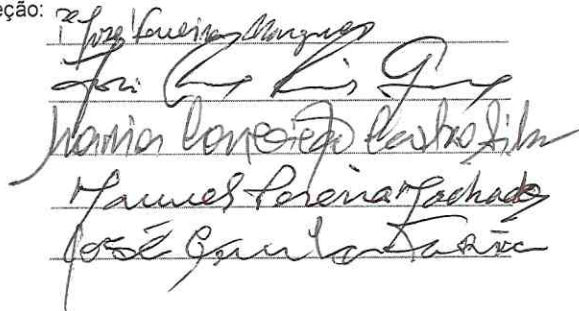 eção: Pe José Ferreira Marques
José
Maria Conceição Castro Silva
Manuel Pereira Machado
José Faria